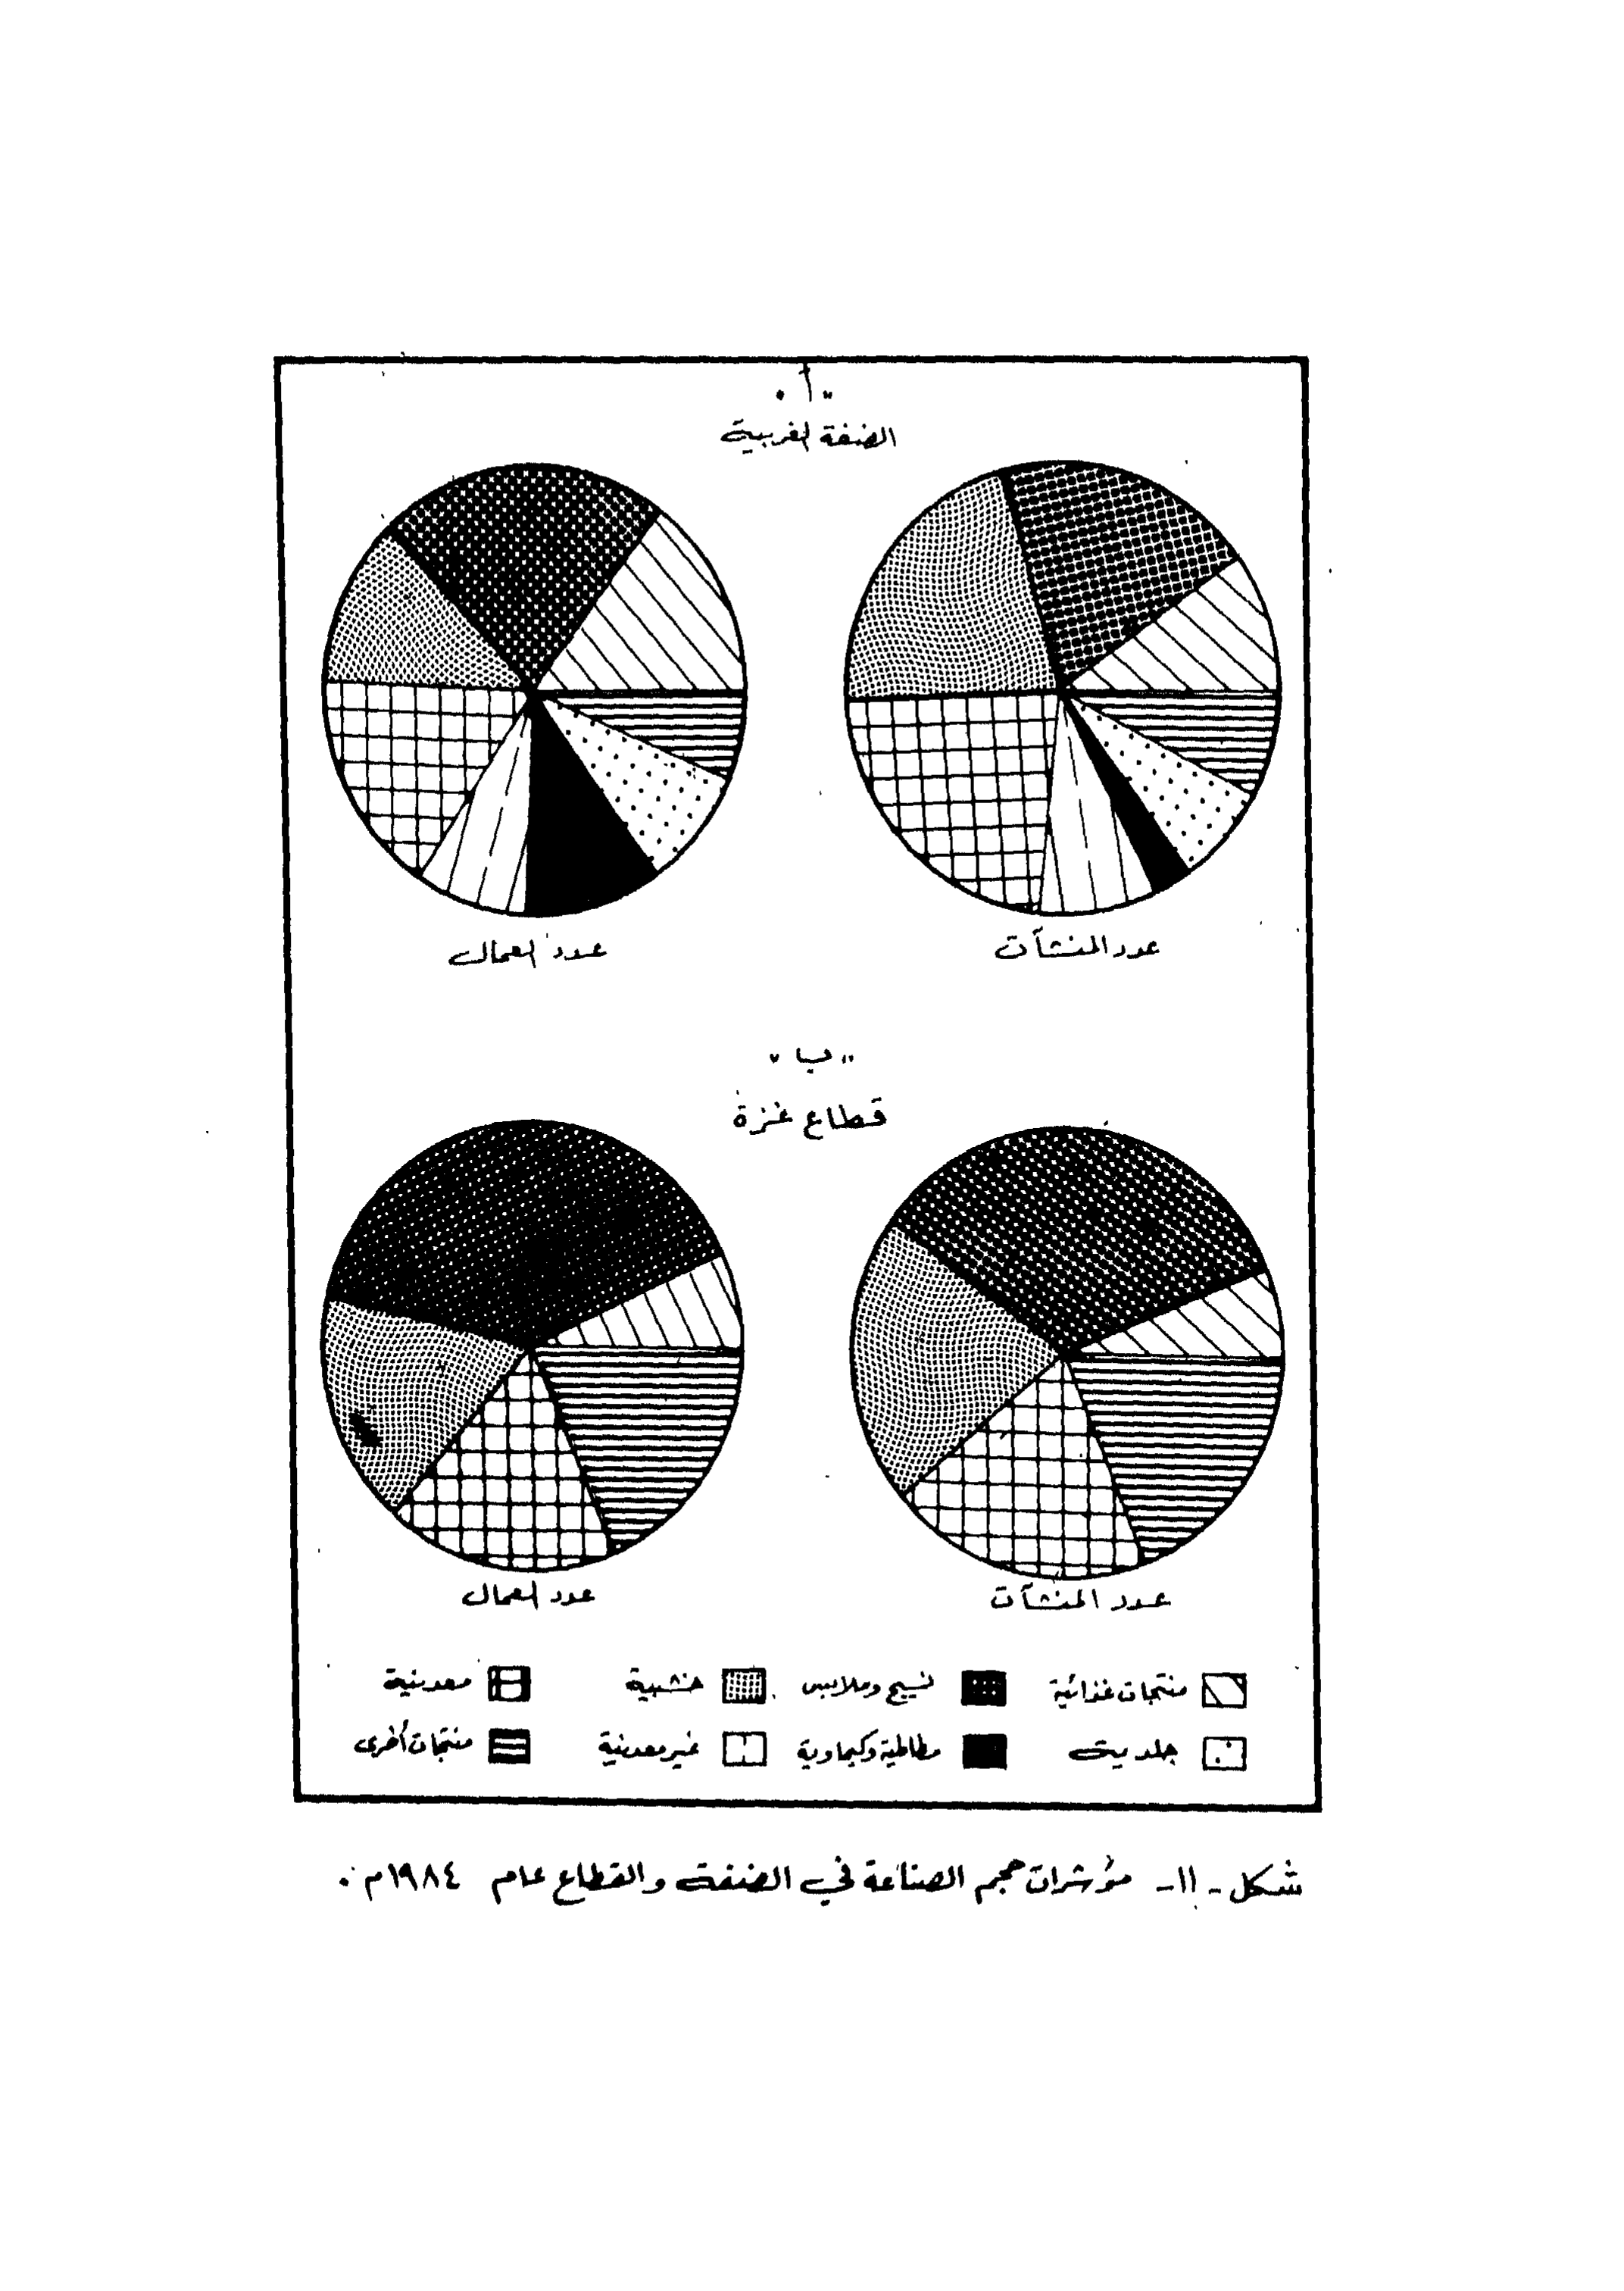 "أ"
الضفة الغربية
عدد المنشآت
عدد العمال
"ب"
قطاع غزة
عدد المنشآت
عدد العمال
منتجات غذائية نسيج وملابس خشبية معدنية
جلدية مطاطية وكيماوية غير معدنية منتجات أخرى
شكل -١١- مؤشرات حجم الصناعة في الضفة والقطاع عام ١٩٨٤م.